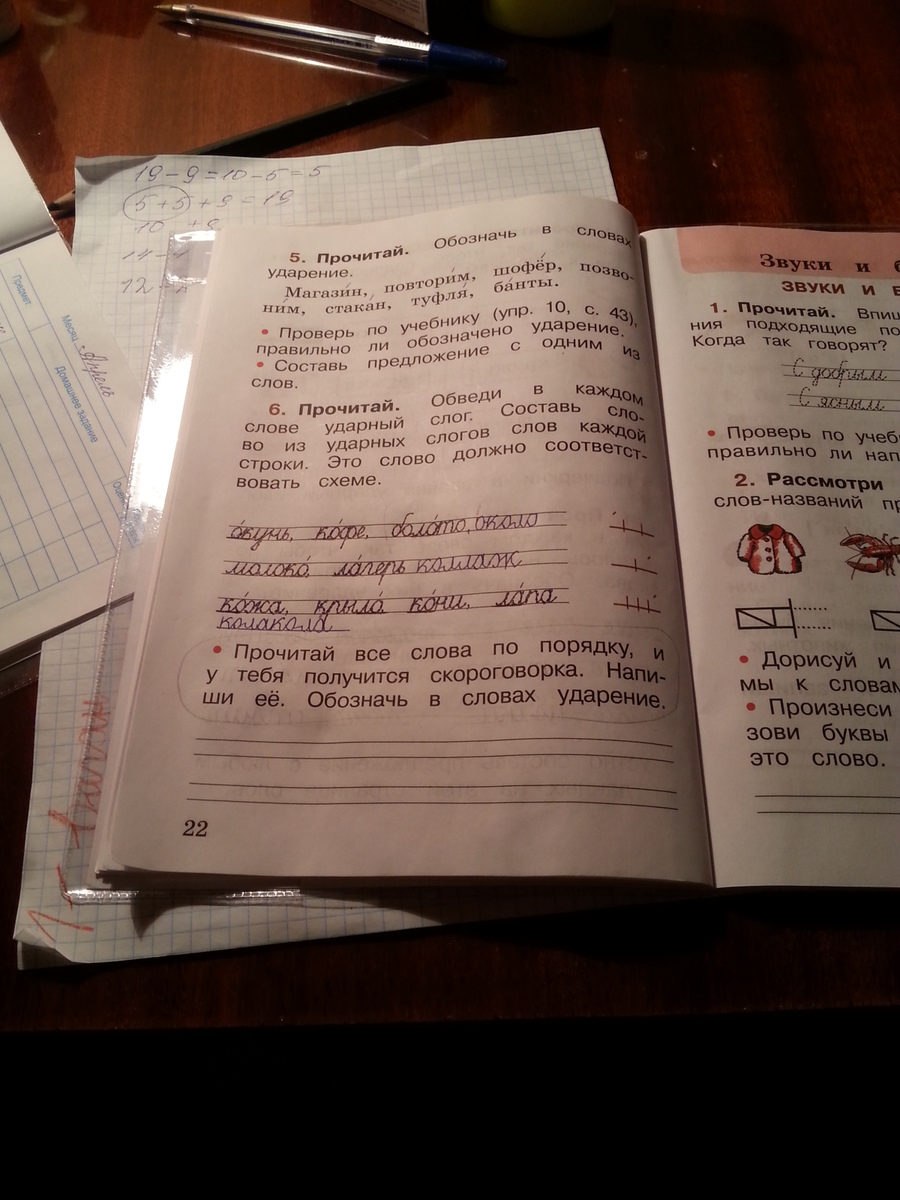 19-9=10-5=5
5+5+9=19
Предмет
Месяц Апрель
Домашнее задание
5. Прочитай. Обозначь в словах
ударение.
Магази́н, повтори́м, шофёр, позво-
ни́м, стака́н, туфля́, ба́нты.
• Проверь по учебнику (упр. 10, с. 43),
правильно ли обозначено ударение.
• Составь предложение с одним из
слов.
6. Прочитай. Обведи в каждом
слове ударный слог. Составь сло-
во из ударных слогов слов каждой
строки. Это слово должно соответст-
вовать схеме.
о́кунь, ко́фе, боло́то, около
молоко́, ла́герь коллаж
ко́жа, крыла́, ко́ни, ла́па
колакола
• Прочитай все слова по порядку, и
у тебя получится скороговорка. Напи-
ши её. Обозначь в словах ударение.
22
Звуки и
ЗВУКИ И
1. Прочитай. Впиш
ния подходящие по
Когда так говорят?
С добрым
С ясным
• Проверь по учеб
правильно ли нап
2. Рассмотри
слов-названий пр
• Дорисуй и
мы к словам
• Произнеси
зови буквы
это слово.